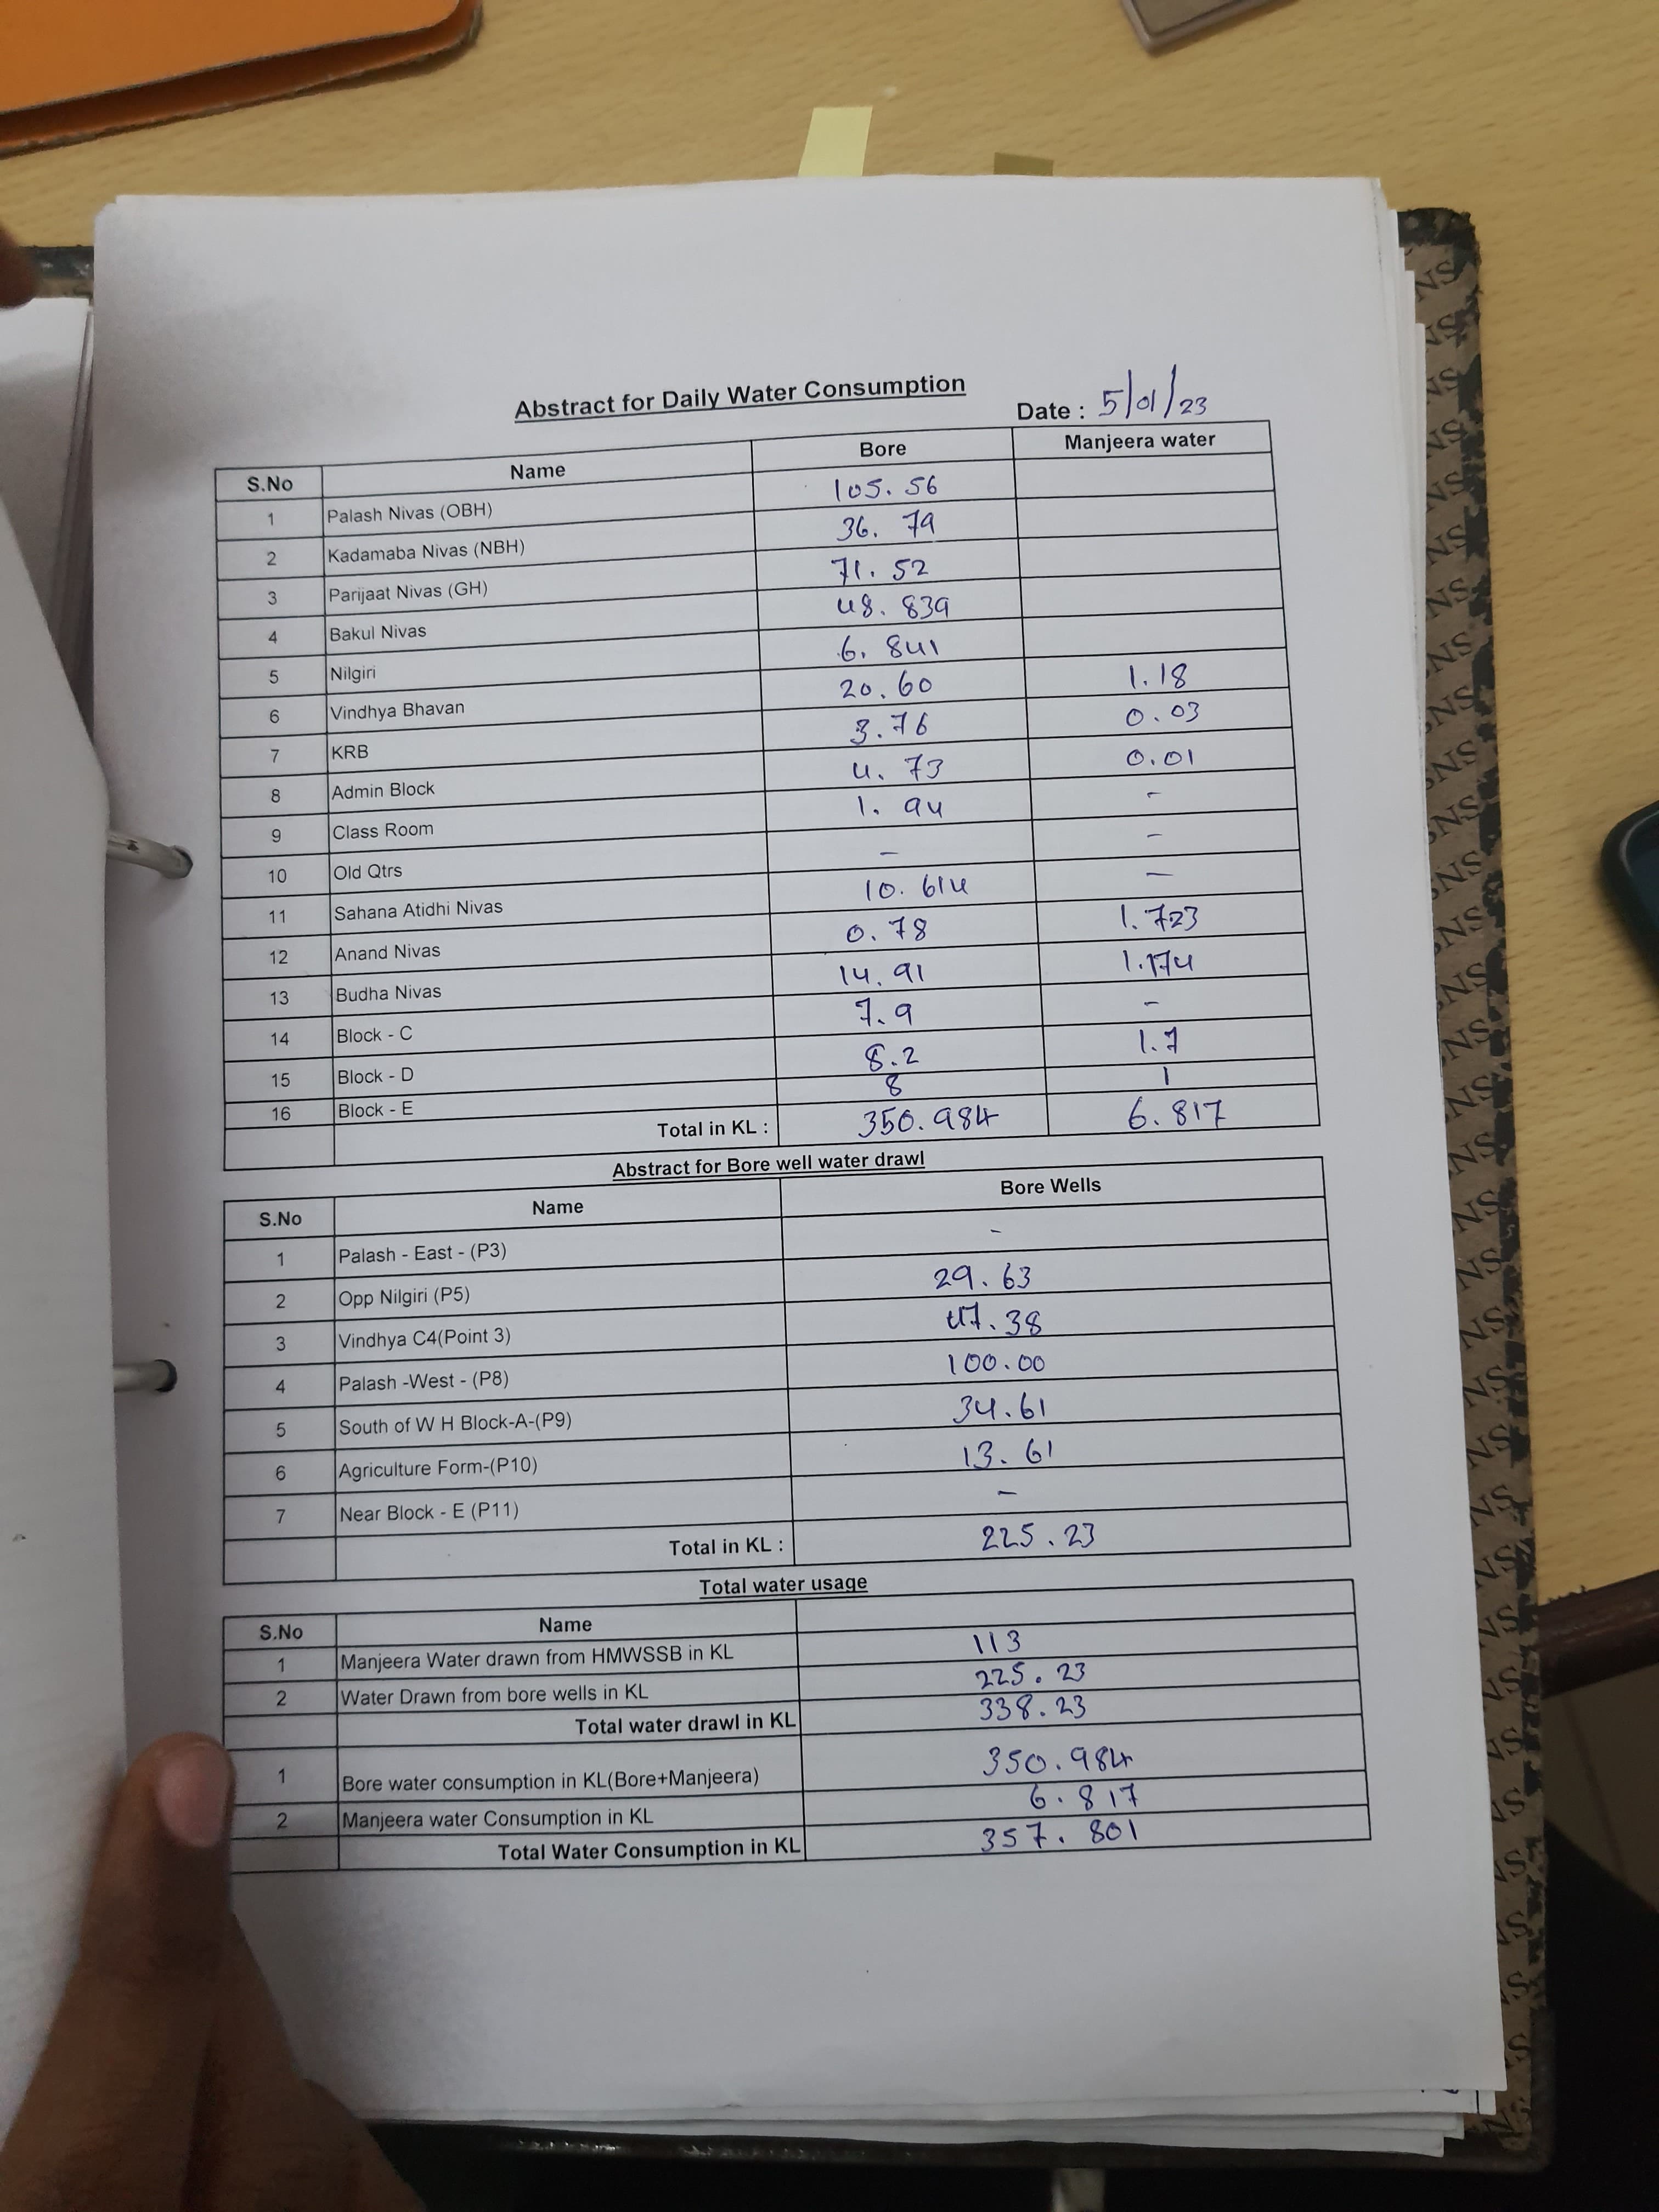 Abstract for Daily Water Consumption
Date : 5/01/23
S.No Name Bore Manjeera water
1 Palash Nivas (OBH) 105.56
2 Kadamaba Nivas (NBH) 36.79
3 Parijaat Nivas (GH) 71.52
4 Bakul Nivas 48.839
5 Nilgiri 6.841
6 Vindhya Bhavan 20.60 1.18
7 KRB 3.76 0.03
8 Admin Block 4.73 0.01
9 Class Room 1.94 -
10 Old Qtrs - -
11 Sahana Atidhi Nivas 10.614 -
12 Anand Nivas 0.78 1.723
13 Budha Nivas 14.91 1.174
14 Block - C 7.9 -
15 Block - D 8.2 1.7
16 Block - E 8 1
Total in KL : 350.984 6.817
Abstract for Bore well water drawl
S.No Name Bore Wells
1 Palash - East - (P3) -
2 Opp Nilgiri (P5) 29.63
3 Vindhya C4(Point 3) 47.38
4 Palash -West - (P8) 100.00
5 South of W H Block-A-(P9) 34.61
6 Agriculture Form-(P10) 13.61
7 Near Block - E (P11) -
Total in KL : 225.23
Total water usage
S.No Name
1 Manjeera Water drawn from HMWSSB in KL 113
2 Water Drawn from bore wells in KL 225.23
Total water drawl in KL 338.23
1 Bore water consumption in KL(Bore+Manjeera) 350.984
2 Manjeera water Consumption in KL 6.817
Total Water Consumption in KL 357.801